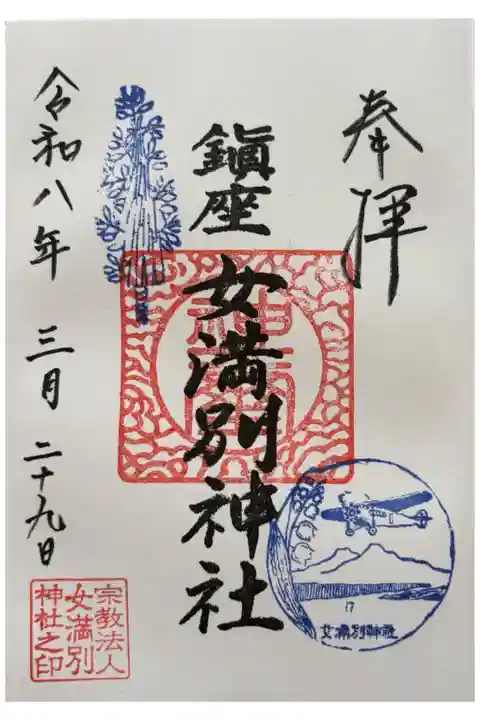 奉拝
鎭座 女満別神社
令和八年 三月 二十九日
宗教法人
女満別
神社之印
女満別神社